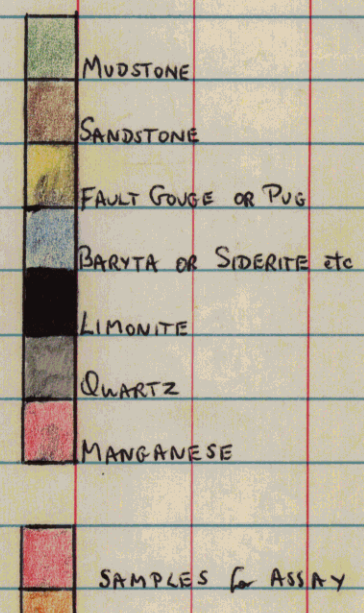 MUDSTONE
SANDSTONE
FAULT GOUGE OR PUG
BARYTA OR SIDERITE etc
LIMONITE
QUARTZ
MANGANESE
SAMPLES for ASSAY